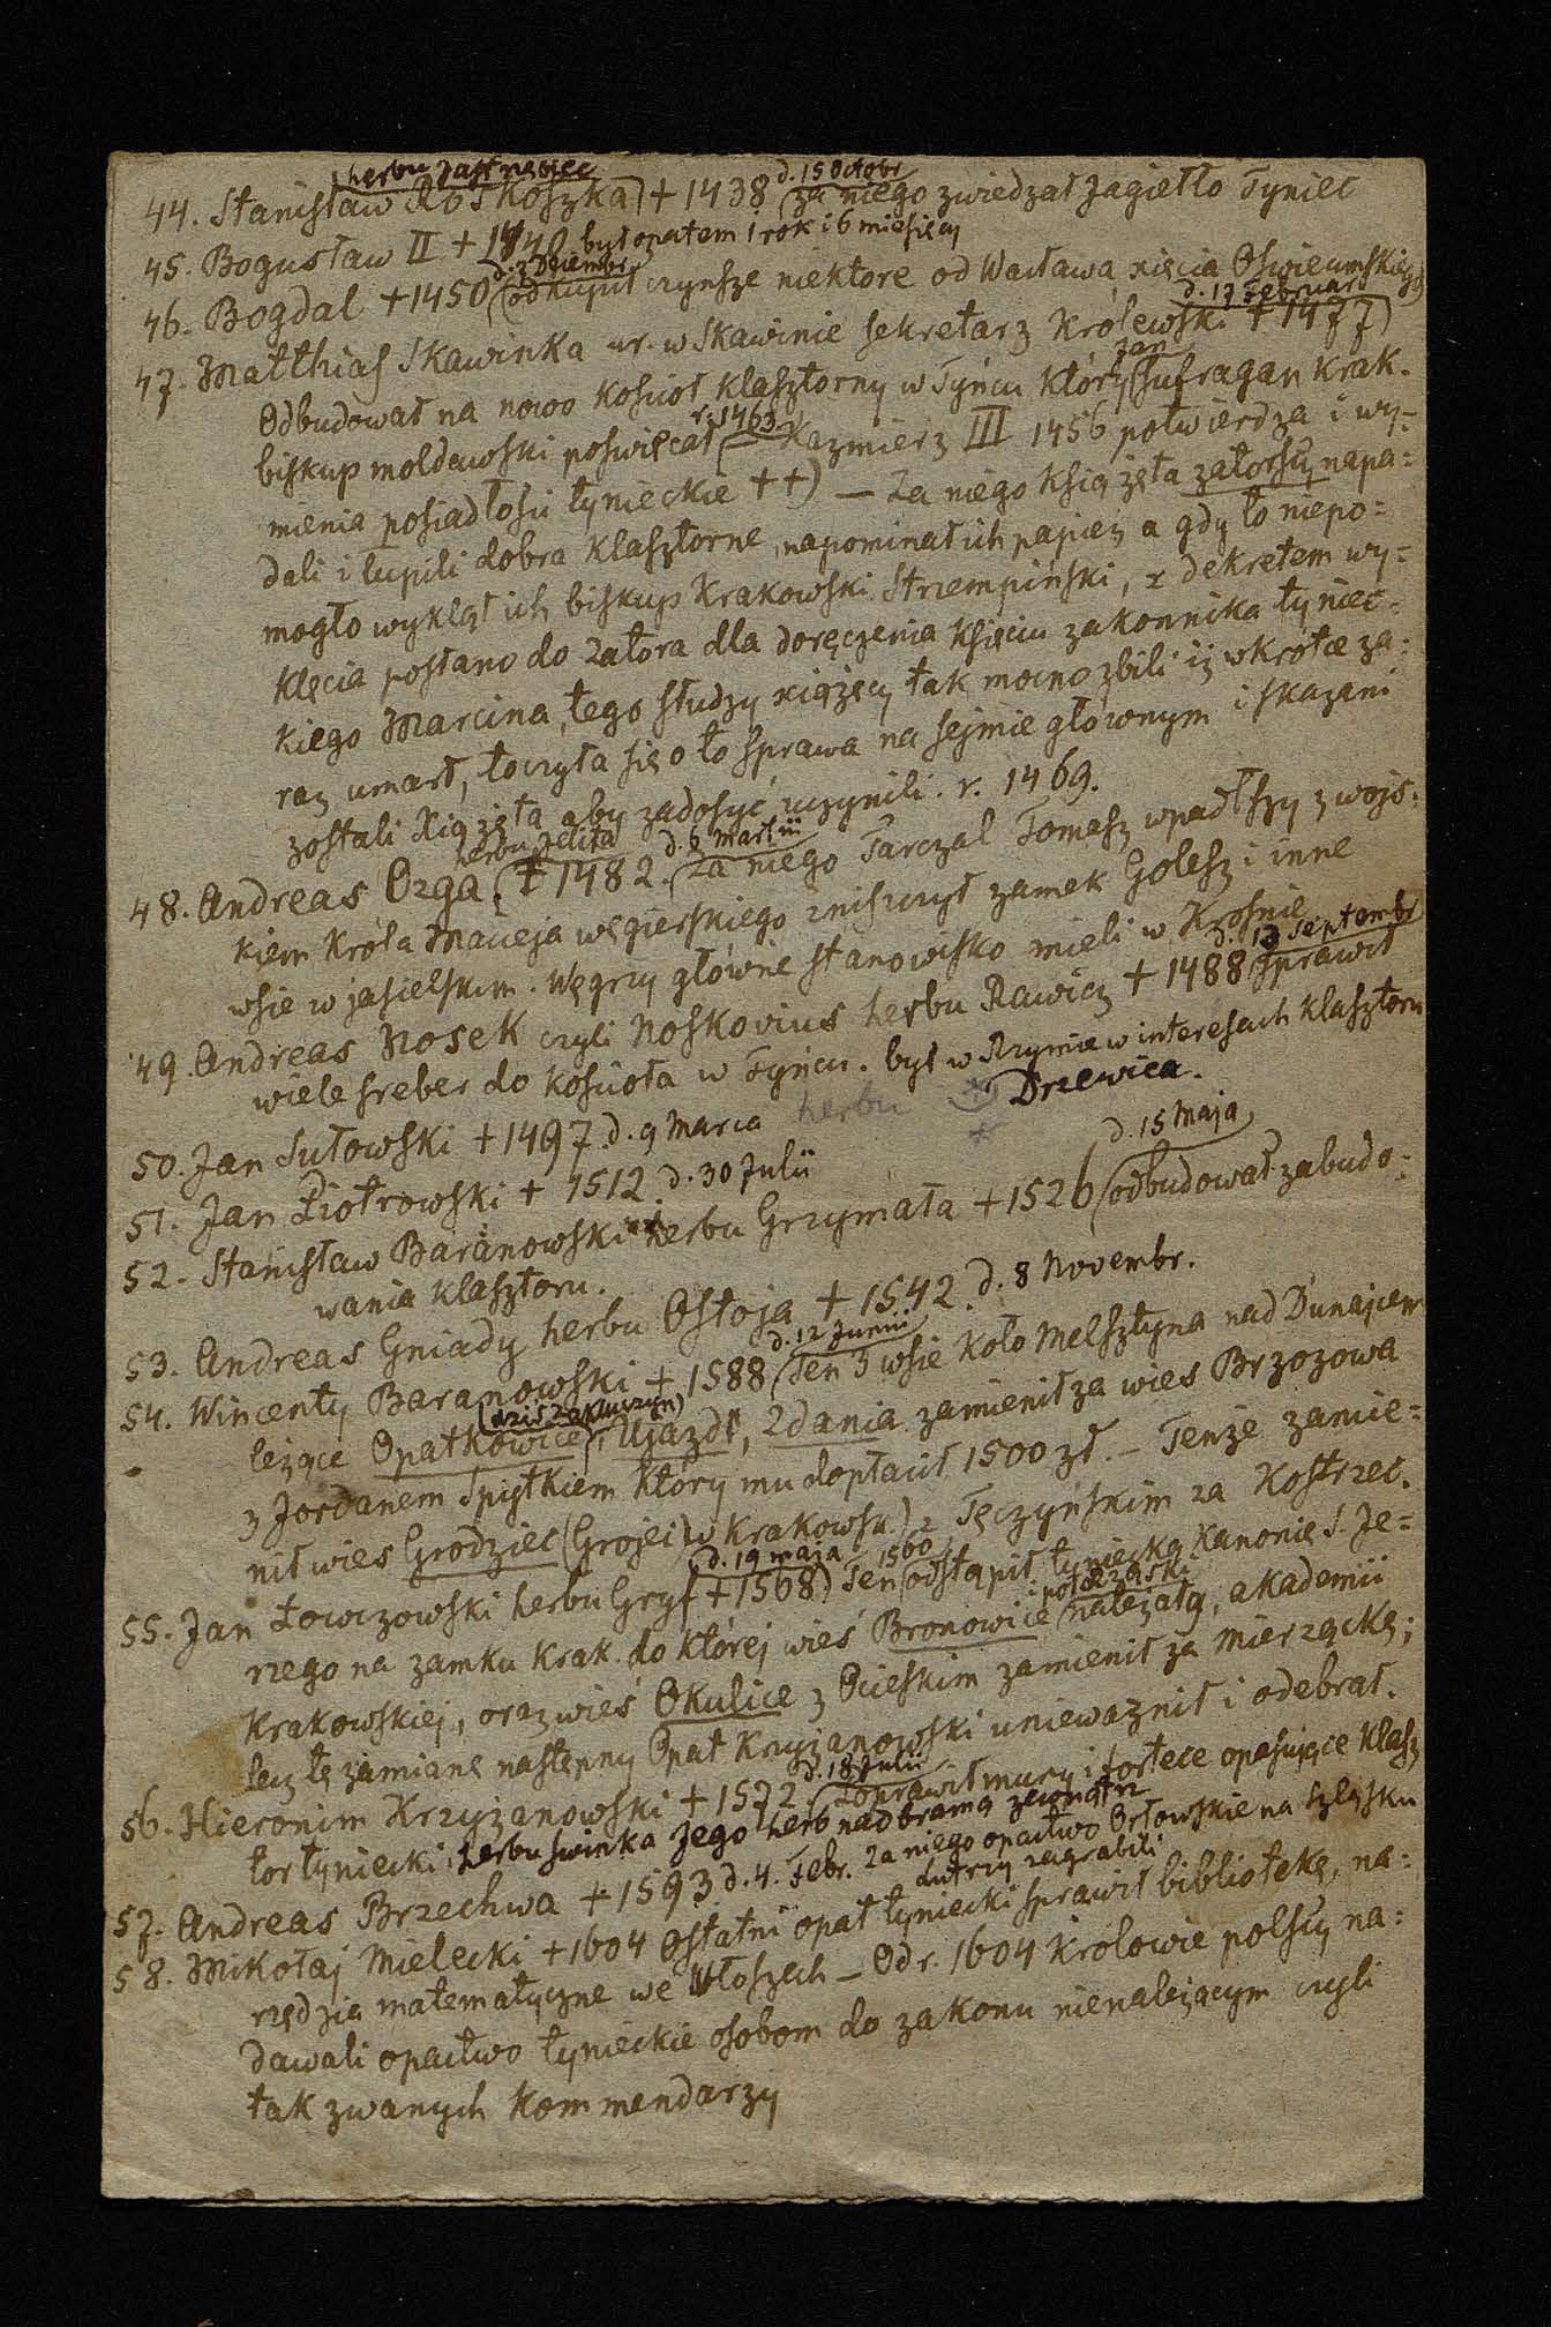 herbu Jastrzębiec d. 15 Octobr
44. Stanisław Roskoszka + 1438 za niego zwiedzał Jagiełło Tyniec
45. Bogusław II + 1440 był opatem 1 rok i 6 miesięcy
d. 3 Decembr
46. Bogdal + 1450 odkupił czynsze niektóre od Wacława xięcia Oświeumskiego
d. 17 Februar
47. Matthias Skawinka ur. w Skawinie sekretarz Królewski + 1477
Jan
Odbudował na nowo Kosciół klasztorny w Tyńcu który sufragan Krak.
r. 1463
biskup moldawski poświęcał — Kazmierz III 1456 potwierdza i wy-
mienia posiadłosci tynieckie ++) — Za niego Książęta zatorscy napa=
dali i lupili dobra Klasztorne, napominał ich papież a gdy to niepo=
mogło wykląt ich biskup Krakowski Strzempiński, z dekretem wy=
klęcia posłano do Zatora dla doręczenia Księciu zakonnika tyniec=
kiego Marcina, tego słudzy xiążęcy tak mocno zbili iż wkrótce za=
raz umarł, toczyła się o to sprawa na sejmie głównym i skazani
zostali Xiążęta aby zadosyć uczynili. r. 1469.
herbu Jelita d. 6 Martii
48. Andreas Ozga, + 1482. Za niego Tarczal Tomasz wpadłszy z wojs=
kiem Króla Macieja węgierskiego zniszczył zamek Golesz i inne
wsie w jasielskim. Węgrzy główne stanowisko mieli w Krośnie
d. 13 Septembr
49. Andreas Nosek czyli Noskovius herbu Rawicz + 1488 sprawił
wiele sreber do kosciola w Tyńcu. był w Rzymie w interesach klasztoru
50. Jan Sułowski + 1497. d. 9 Marca herbu Drzewica.
51. Jan Piotrowski + 1512. d. 30 Julii
d. 15 Maja
52. Stanisław Baranowski herbu Grzymała + 1526 odbudował zabudo=
wania klasztoru.
53. Andreas Gniady herbu Ostoja + 1542. d. 8 Novembr.
d. 12 Junii
54. Wincenty Baranowski + 1588 Ten 3 wsie Koło Melsztyna nad Dunajcem
(dziś Zakluczyn)
leżące Opatkowice, Ujazd, Zdania zamienił za wies Brzozowa
z Jordanem Spytkiem który mu dopłacił 1500 zł. — Tenże zamie=
nił wies Grodziec (Grojec) w Krakowsk.) z Tęczyńskim za Kostrzec.
d. 19 maja 1560
55. Jan Łowczowski herbu Gryf + 1568) Ten odstąpił tyniecką Kanonię S. Je=
i pół Rząski
rzego na zamku Krak. do której wieś Bronowice należały, akademii
Krakowskiej, oraz wieś Okulice z Ocieskim zamienił za Mierzączkę;
lecz tę zamianę następny Opat Krzyżanowski unieważnił i odebrał.
d. 18 Julii
56. Hieronim Krzyżanowski + 1572. Poprawił mury i fortece opasujące klasz
tor tyniecki, herbu świnka Jego herb nad bramą zewnątrz
57. Andreas Brzechwa + 1593 d. 4. Febr. Za niego opactwo Orłowskie na Szląsku
lutrzy zagrabili
58. Mikołaj Mielecki + 1604 Ostatni opat tyniecki sprawił bibliotekę, na=
rzędzia matematyczne we Włoszech — Od r. 1604 królowie polscy na=
dawali opactwo tynieckie osobom do zakonu nienależącym czyli
tak zwanych Kommendarzy